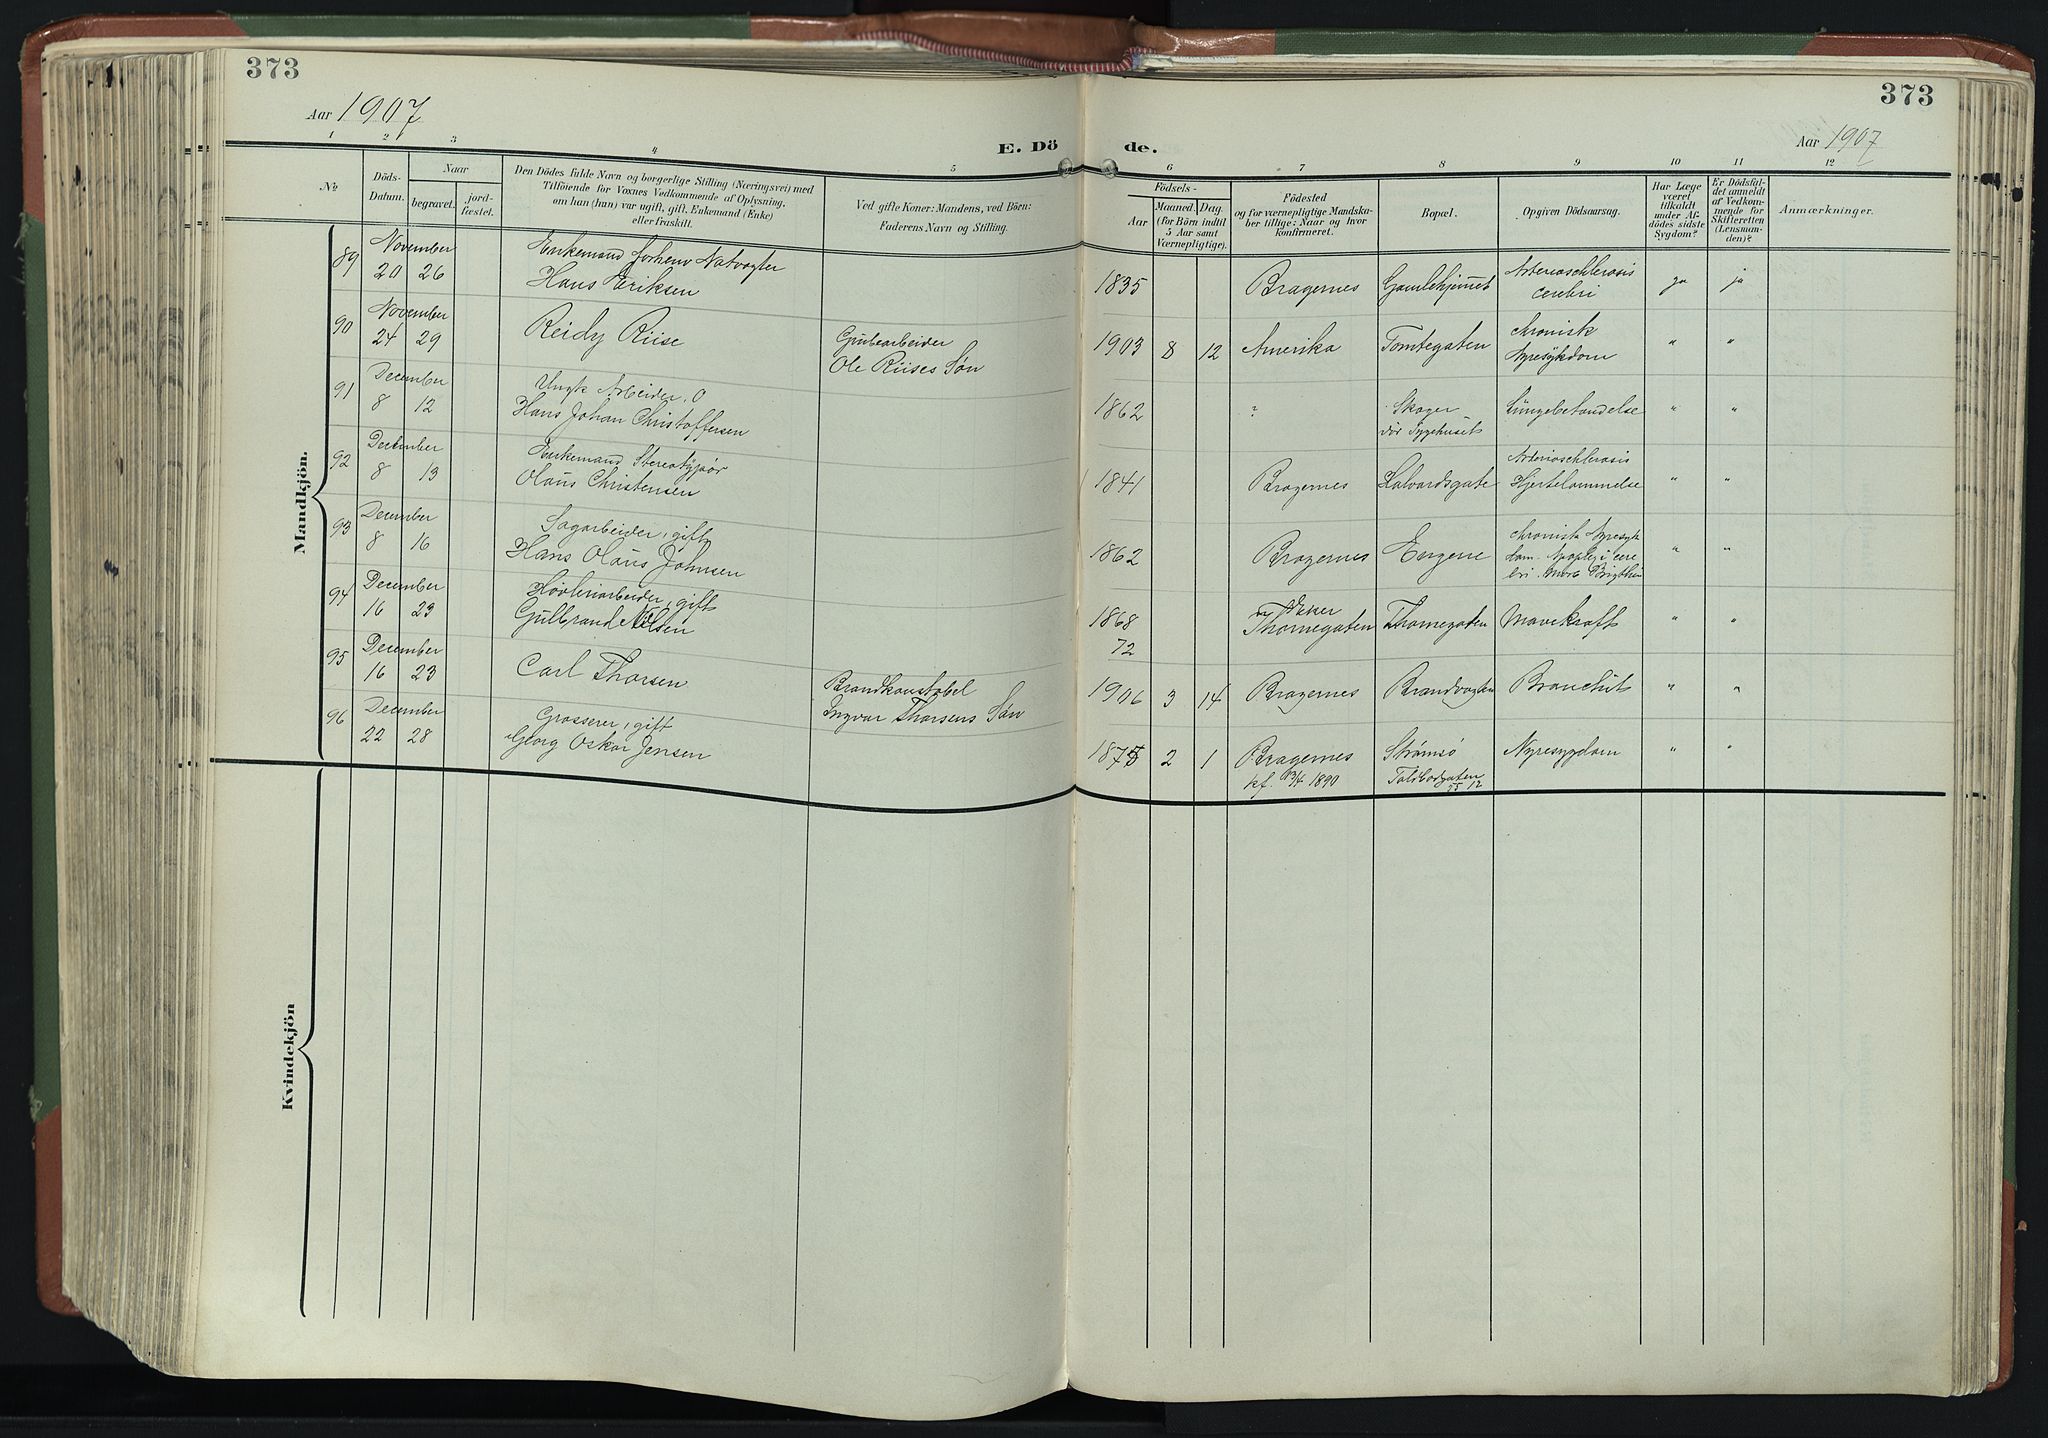 373
373
Aar 1907
Aar 1907
E. Dö
de.
1 2 3 4 5
6 7 8 9 10 11 12
No
Döds-
Datum.
Naar
begravet.
jord-
fæstet.
Den Dödes fulde Navn og borgerlige Stilling (Næringsvei) med
Tilföiende for Voxnes Vedkommende af Oplysning,
om han (hun) var ugift, gift, Enkemand (Enke)
eller fraskilt.
Ved gifte Koner: Mandens, ved Börn:
Faderens Navn og Stilling.
Födsels-
Aar
Maaned.
Dag.
(for Börn indtil
5 Aar samt
Værnepligtige).
Födested
og for værnepligtige Mandska-
ber tillige: Naar og hvor
konfirmeret.
Bopæl.
Opgiven Dödsaarsag.
Har Læge
været
tilkaldt
under Af-
dödes sidste
Sygdom?
Er Dödsfal-
det anmeldt
af Vedkom-
mende for
Skifteretten
(Lensman-
den)?
Anmærkninger.
Mandkjön.
89 November Enkemand Natvagter
20 26 Hans Eriksen
1835 Bragernes Gamlehjemmet Arterioschlerosis cerebri ja ja
90 November
24 29 Reidy Riise Grubearbeider
Ole Riises Søn
1903 8 12 Amerika Tomtegaten chronisk Nyresykdom " "
91 December Ungk. Arbeider
8 12 Hans Johan Christoffersen
1862 ? Skoger Sygehuset Lungebetændelse " "
92 December Enkemand Stereotypør
8 13 Olaus Christensen
1841 Bragernes Halvardsgate Arterioschlerosis Hjertelammelse " "
93 December Sagarbeider, gift
8 16 Hans Olaus Johnsen
1862 Bragernes Engene chronisk Nyresyk
dom Apoplexi cere
bri. Morb. Brigthii " "
94 December Høvleriarbeider, gift
16 23 Gulbrand Nilsen
1868
72 Eker Thornegaten Thornegaten Mavekræft " "
95 December
16 23 Carl Thorsen Brandkonstabel
Ingvar Thorsens Søn
1906 3 14 Bragernes Brandvagten Bronchit " "
96 December Grosserer, gift
22 28 Georg Oskar Jensen
1875 2 1 Bragernes Strømsø Nyresygdom " "
kf. 13/4 1890 Toldbodgaten
Kvindekjön